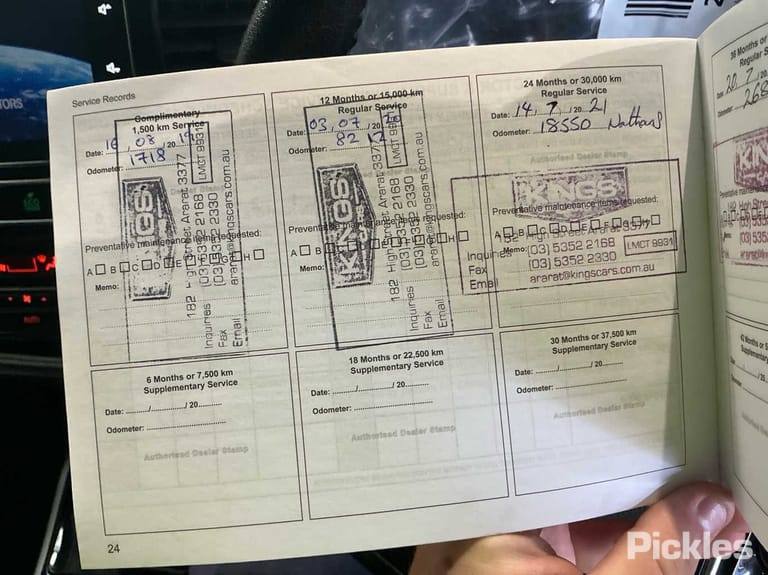 Service Records
Complimentary
1,500 km Service
Date: 16 / 08 / 2019
Odometer: 1718
KINGS
182 High Street Ararat 3377
Inquiries (03) 5352 2168
Fax (03) 5352 2330
Email ararat@kingscars.com.au
LMCT 9931
Preventative maintenance items requested:
A B C D E F G H
Memo:
12 Months or 15,000 km
Regular Service
Date: 03, 07 / 20 20
Odometer: 8212
KINGS
182 High Street Ararat 3377
Inquiries (03) 5352 2168
Fax (03) 5352 2330
Email ararat@kingscars.com.au
LMCT 9931
Preventative maintenance items requested:
A B C D E F G H
Memo:
24 Months or 30,000 km
Regular Service
Date: 14, 7 / 20 21
Odometer: 18550 Nathan S
Authorised Dealer Stamp
KINGS
Preventative maintenance items requested:
A B C D E F G H
182 High Street Ararat 3377
Inquiries (03) 5352 2168 LMCT 9931
Memo:
Fax (03) 5352 2330
Email ararat@kingscars.com.au
6 Months or 7,500 km
Supplementary Service
Date: / / 20
Odometer:
Authorised Dealer Stamp
18 Months or 22,500 km
Supplementary Service
Date: / / 20
Odometer:
Authorised Dealer Stamp
30 Months or 37,500 km
Supplementary Service
Date: / / 20
Odometer:
Authorised Dealer Stamp
24
36 Months or
Regular S
Date: 20 / 7 / 20
Odometer: 268
Preventative mainte
182 High Street
(03) 5352
(03) 5352
ararat@king
Supplementary
Date: / / 20
Odometer:
TORS
AUTO
Pickles